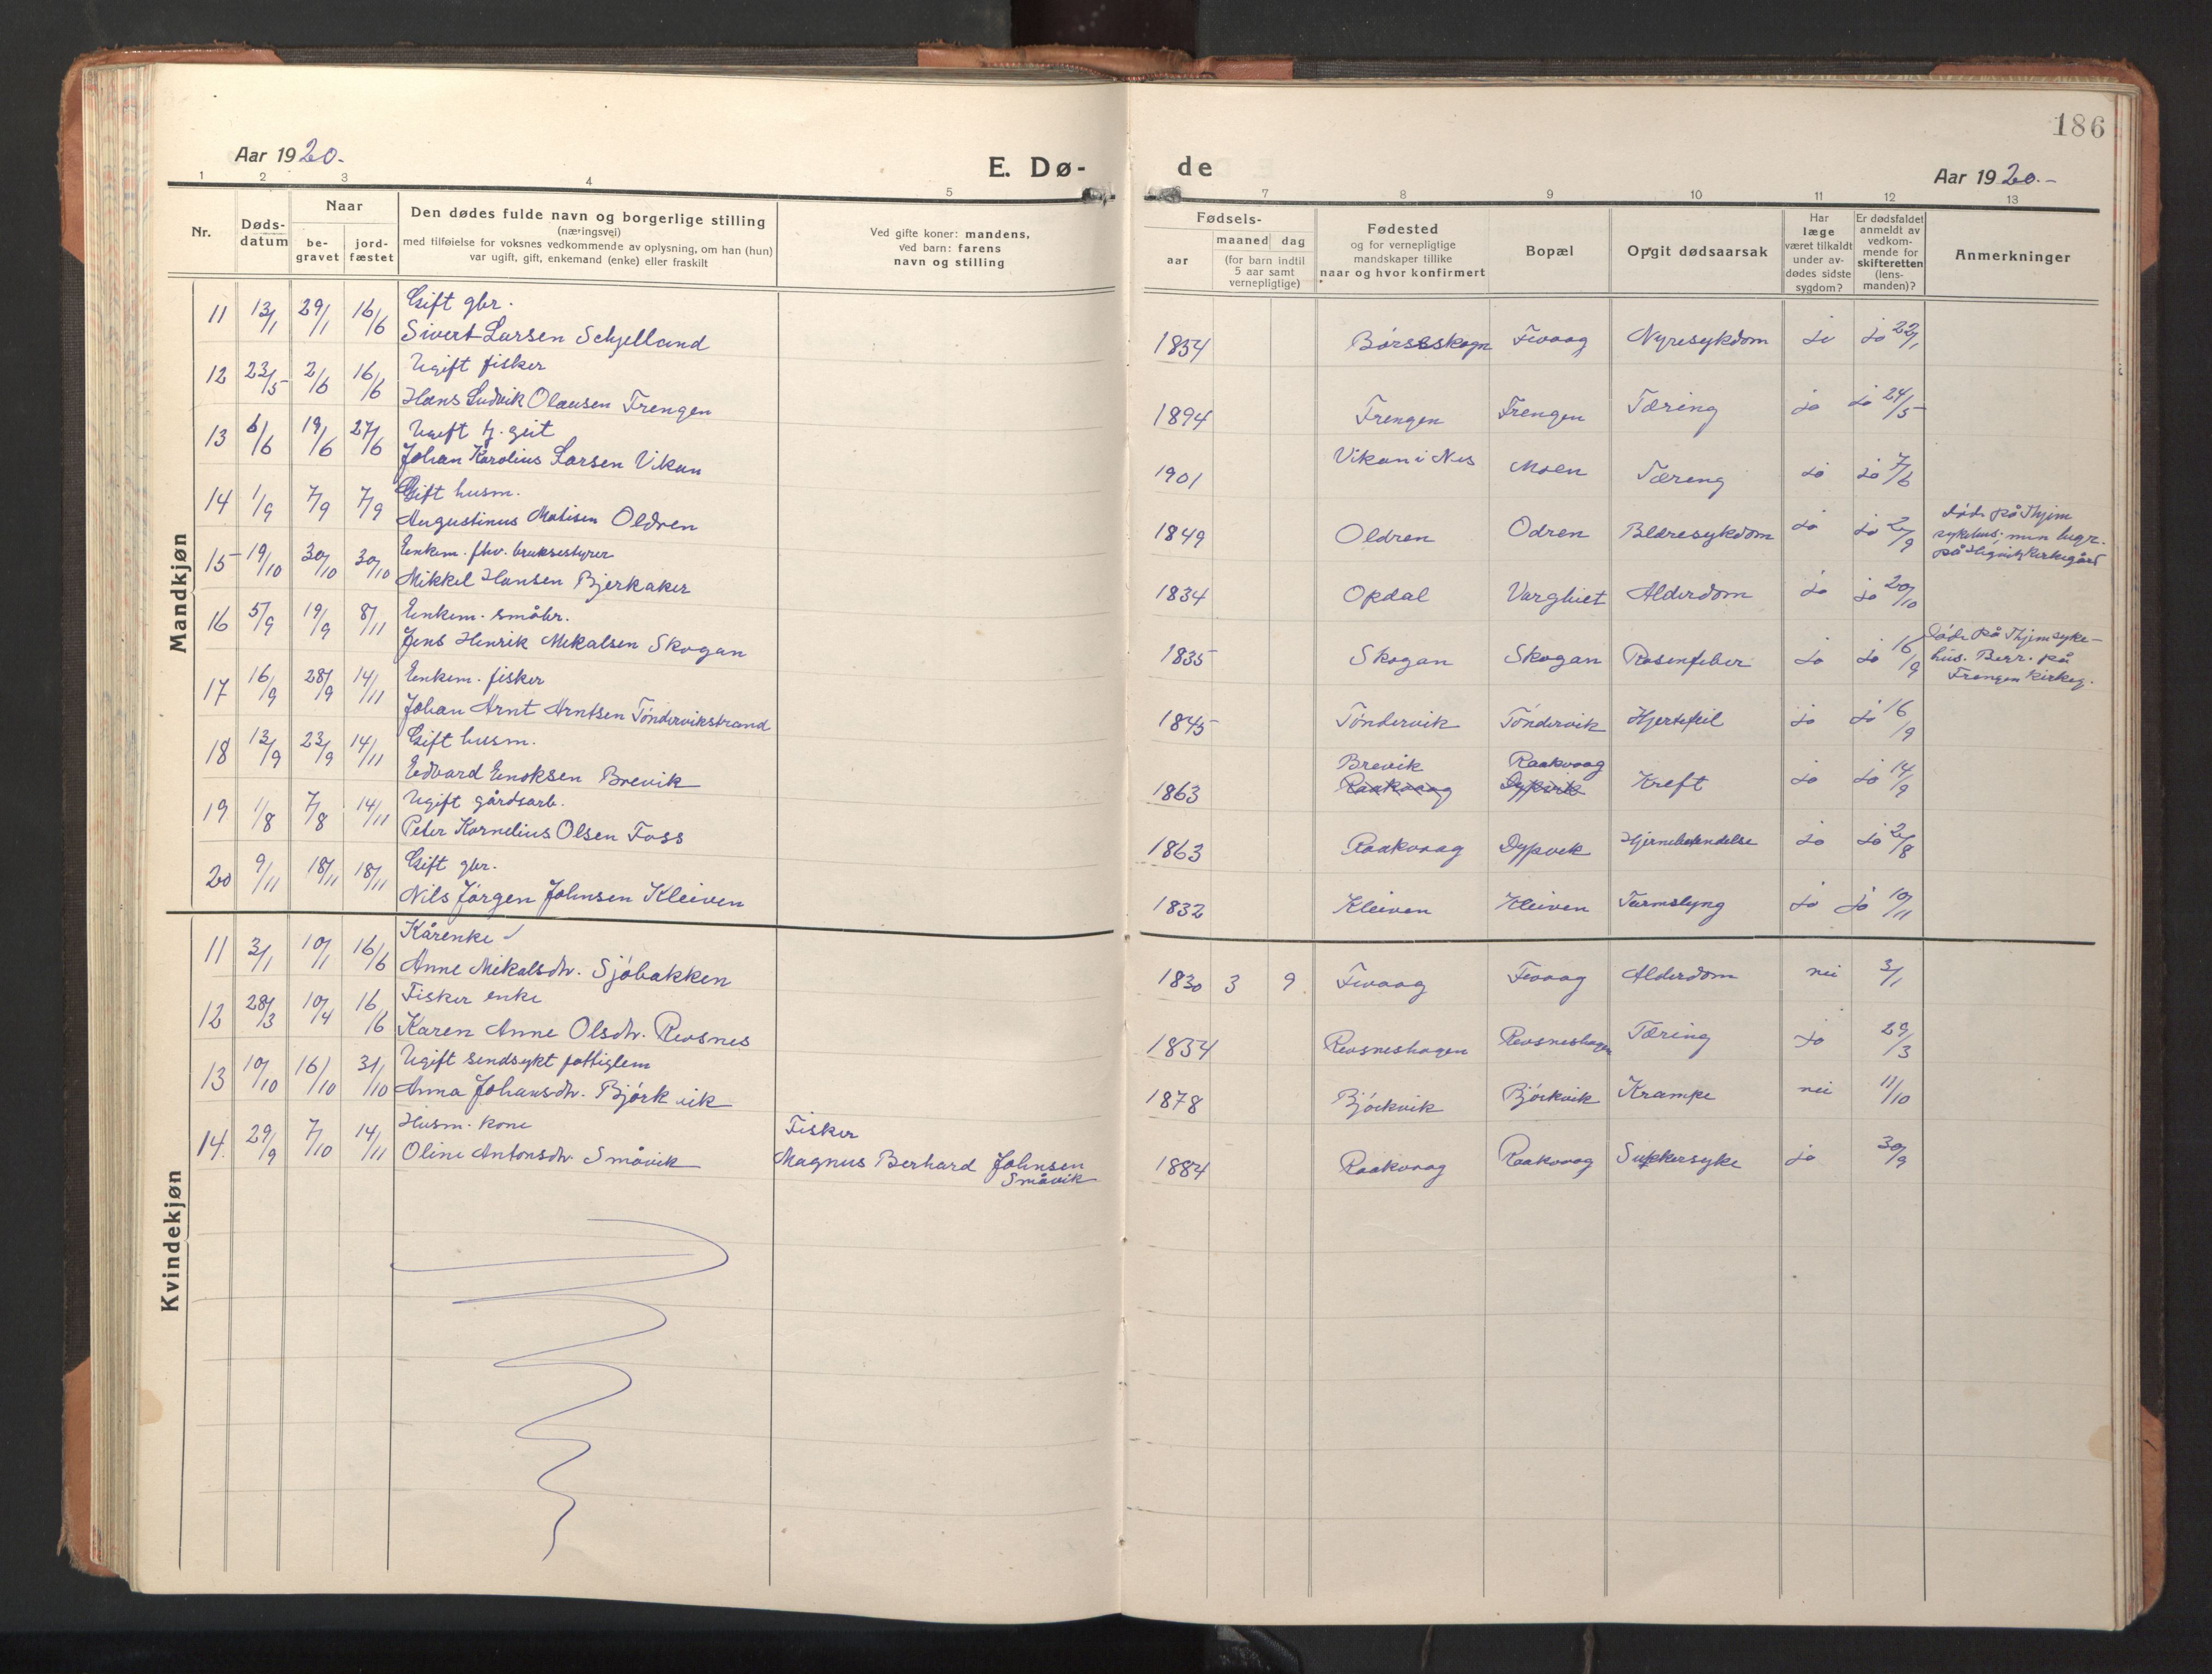 186
Aar 1920.-
E. Dø-
de
Aar 1920.-
1 2 3 4 5 6 7 8 9 10 11 12 13
Nr.
Døds-
datum
Naar
be-
gravet
jord-
fæstet
Den dødes fulde navn og borgerlige stilling
(næringsvei)
med tilføielse for voksnes vedkommende av oplysning, om han (hun)
var ugift, gift, enkemand (enke) eller fraskilt
Ved gifte koner: mandens,
ved barn: farens
navn og stilling
Fødsels-
aar
maaned dag
(for barn indtil
5 aar samt
vernepligtige)
Fødested
og for vernepligtige
mandskaper tillike
naar og hvor konfirmert
Bopæl
Opgit dødsaarsak
Har
læge
været tilkaldt
under av-
dødes sidste
sygdom?
Er dødsfaldet
anmeldt av
vedkom-
mende for
skifteretten
(lens-
manden)?
Anmerkninger
Mandkjøn
Gift gbr.
11 13/1 29/1 16/6 Sivert Larsen Schjelland 1834 Børseskogn Fevaag Nyresykdom ja ja 22/1
Ugift fisker
12 23/5 2/6 16/6 Hans Ludvik Olausen Frengen 1894 Frengen Frengen Tæring ja ja 24/5
Ugift
13 6/6 19/6 27/6 Johan Karolius Larsen Vikan 1901 Vikan i Nes Moen Tæring ja ja 7/6
Gift husm.
14 1/9 7/9 7/9 Augustinus Matisen Oldren 1849 Oldren Odren Blæresykdom ja ja 2/9
død på Thjem
sykehus, men begr.
på kirkegård
Enkem. fhv. bruksestyrer
15 19/10 30/10 30/10 Mikkel Hansen Bjerkaker 1834 Opdal Varghiet Alderdom ja ja 20/10
Enkem. småbr.
16 5/9 19/9 8/11 Jens Henrik Mikalsen Skogan 1835 Skogan Skogan Rosenfeber ja ja 16/9
Død på Thjem syke-
hus. Berr. på
Frengen kirkeg.
Enkem. fisker
17 16/9 28/9 14/11 Johan Arnt Arntsen Tøndervikstrand 1845 Tøndervik Tøndervik Hjertefeil ja ja 16/9
Gift husm.
18 13/9 23/9 14/11 Edvard Enoksen Brevik 1863 Brevik Raakvaag Raakvaag Dypvik Kreft ja ja 14/9
Ugift gårdsarb.
19 1/8 7/8 14/11 Peter Kornelius Olsen Foss 1863 Raakvaag Dypvek Hjernebetendelse ja ja 2/8
Gift gbr.
20 9/11 18/11 18/11 Nils Jørgen Johnsen Kleiven 1832 Kleiven Kleiven Tarmslyng ja ja 10/11
Kvindekjøn
Kårenke
11 3/1 10/1 16/6 Anne Mikalsdtr. Sjøbakken 1830 3 9 Fevaag Fevaag Alderdom nei 3/1
Fisker enke
12 28/3 10/4 16/6 Karen Anne Olsdtr. Revsnes 1834 Revsneshagen Revsneshagen Tæring ja 29/3
Ugift sendsykt fattiglem
13 10/10 16/10 31/10 Anna Johansdtr. Bjørkvik 1878 Bjørkvik Bjørkvik Krampe nei 11/10
Husm. kone
14. 29/9 7/10 14/11 Oline Antonsdtr. Småvik
Fisker
Magnus Berhard Johnsen
Småvik
1884 Raakvaag Raakvaag Sukkersyke ja 30/9